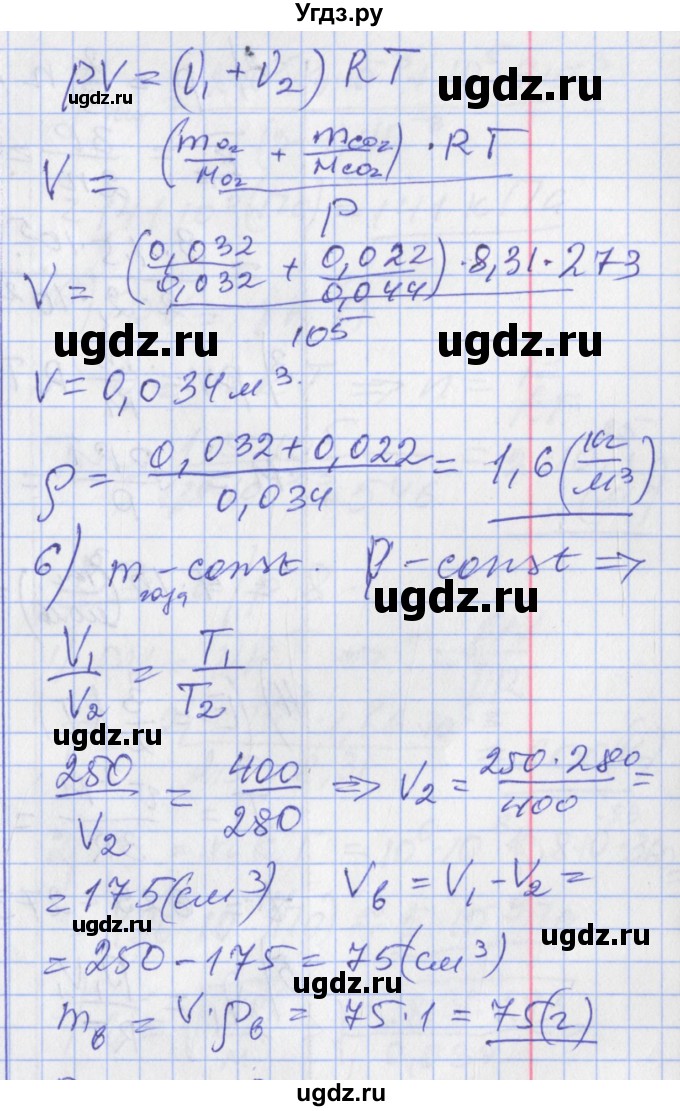 Угдз.ру
pV = (ν₁ + ν₂) RT
ugdz.ru ugdz.ru
V = (mO₂/MO₂ + mCO₂/MCO₂) · RT / P
V = (0,032/0,032 + 0,022/0,044) · 8,31 · 273 / 105
ugdz.ru ugdz.ru
V = 0,034 м³.
ρ = (0,032 + 0,022)/0,034 = 1,6 (кг/м³)
6) m газа - const. p - const ⇒
ugdz.ru
V₁/V₂ = T₁/T₂
ugdz.ru
250/V₂ = 400/280 ⇒ V₂ = 250·280/400 =
= 175 (см³) Vв = V₁ - V₂ =
ugdz.ru ugdz.ru
= 250 - 175 = 75 (см³)
ugdz.ru
mв = V·ρв = 75·1 = 75 (г)
ugdz.ru